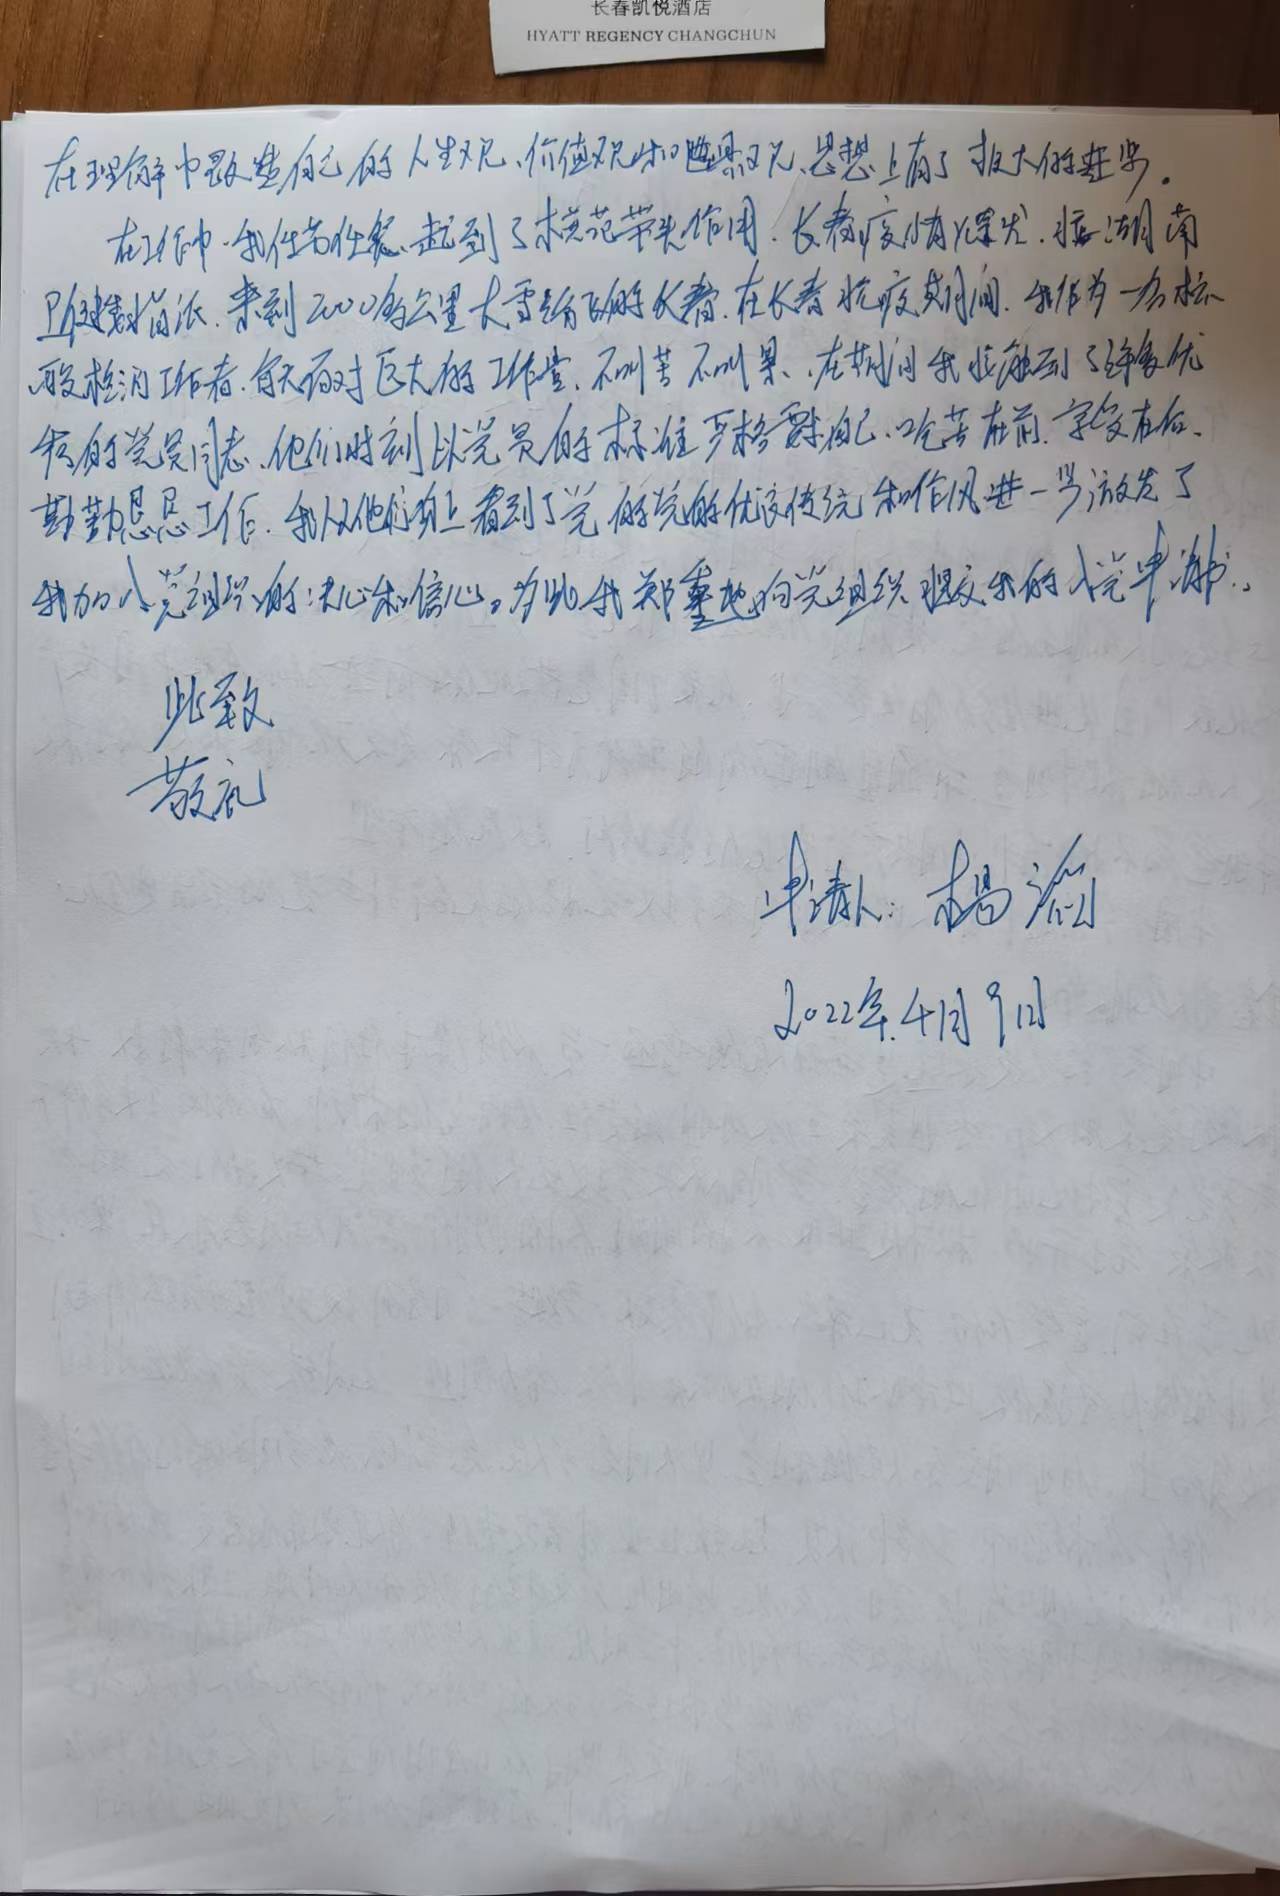 长春凯悦酒店
HYATT REGENCY CHANGCHUN
在理解中改造自己的人生观、价值观和世界观、思想上有了极大的进步。
在工作中，我任劳任怨、起到了模范带头作用，长春疫情爆发，接湖南
卫健委指派，来到2000多公里大雪纷飞的长春，在长春抗疫期间，我作为一名核
酸检测工作者，每天面对巨大的工作量，不叫苦不叫累，在期间我接触到了许多优
秀的党员同志、他们时刻以党员的标准严格要求自己、吃苦在前，享受在后、
勤勤恳恳工作，我从他们身上看到了党的党的优良传统和作风进一步激发了
我加入党组织的决心和信心。为此我郑重地向党组织提交我的入党申请书。
此致
敬礼
申请人：杨滔
2022年4月9日